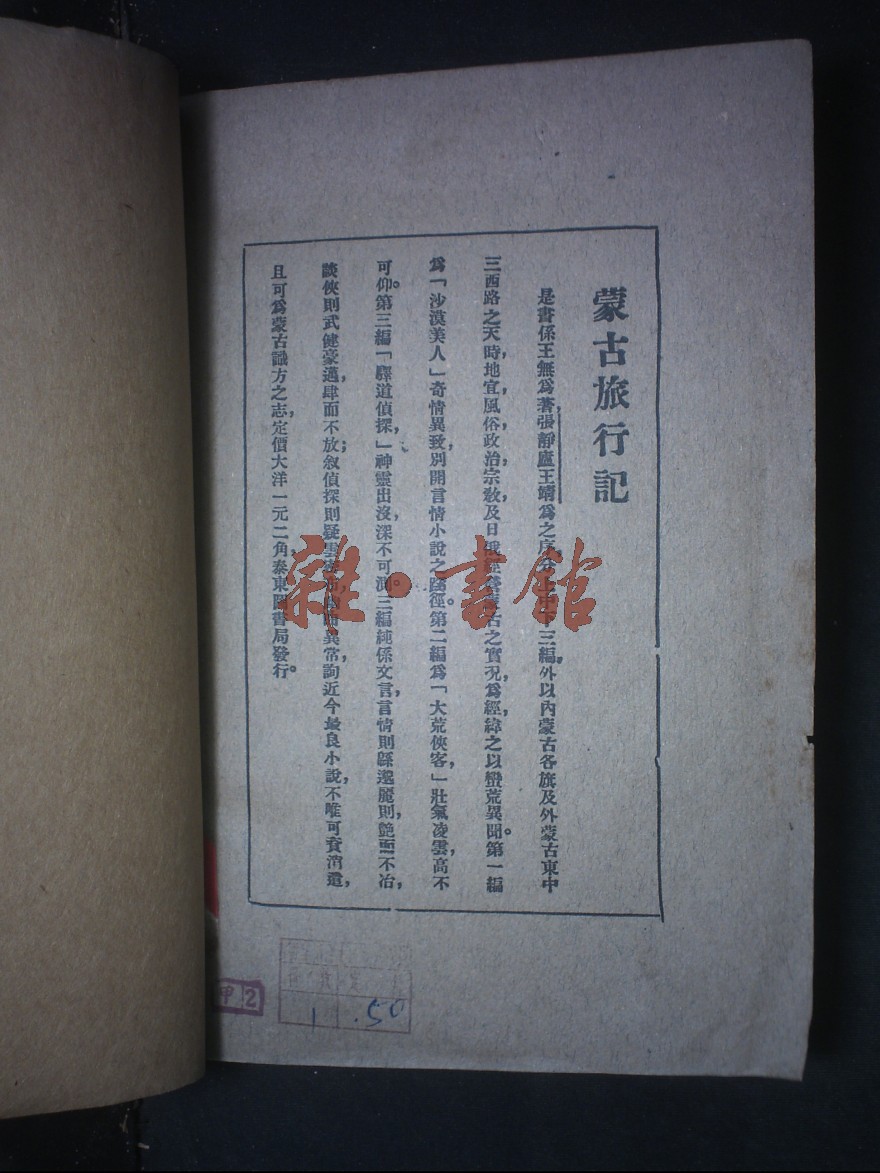 蒙古旅行記
是書係王無爲著,張靜廬王靖爲之序,分上中下三編,外以內蒙古各旗及外蒙古東中
三西路之天時,地宜,風俗,政治,宗教,及日俄經營蒙古之實況,爲經,緯之以蠻荒異聞。第一編
爲「沙漠美人」奇情異致,別開言情小說之蹊徑。第二編爲「大荒俠客」壯氣凌雲,高不
可仰。第三編「驛道偵探」神靈出沒,深不可測。三編純係文言,言情則緜邈麗則,艶而不冶,
談俠則武健豪邁,肆而不放;敘偵探則疑雲異常,詢近今最良小說,不唯可資消遣,
且可爲蒙古識方之志,定價大洋一元二角泰東圖書局發行。
雜·書館
甲 2
1.50